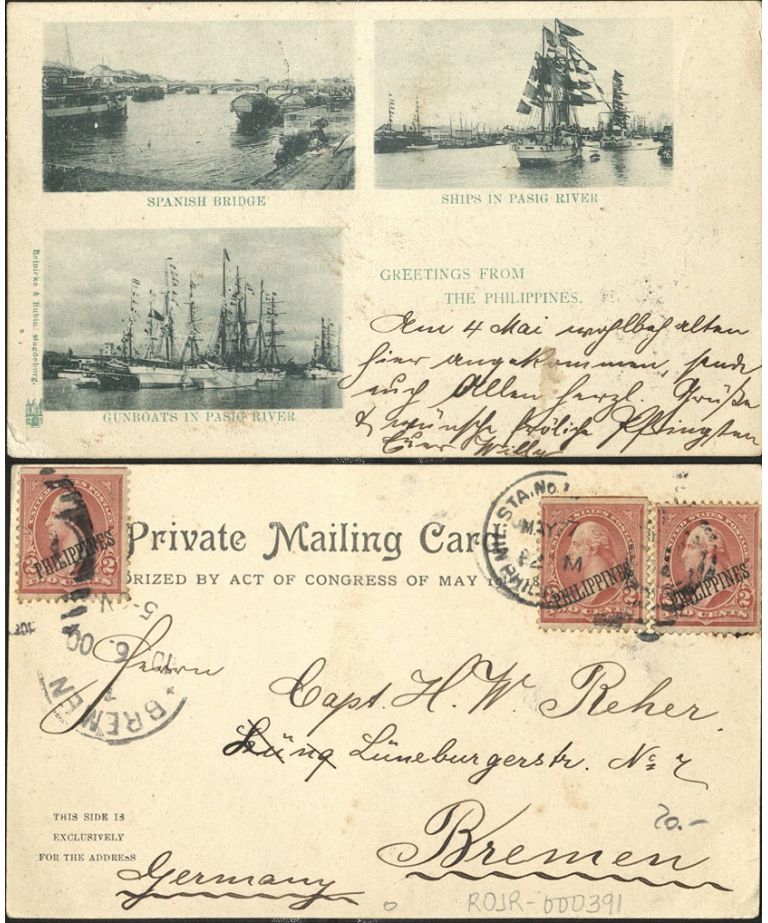 SPANISH BRIDGE
SHIPS IN PASIG RIVER
Reinicke & Rubin, Magdeburg.
GREETINGS FROM
THE PHILIPPINES.
Am 4 Mai wohlbehalten
hier angekommen, sende
euch Allen herzl. Grüße
& wünsche fröliche Pfingsten
Euer Willy
GUNBOATS IN PASIG RIVER
Private Mailing Card
ORIZED BY ACT OF CONGRESS OF MAY
STA. No. 1
MAY
M
PHIL
PHILIPPINES
2 TWO CENTS 2
PHILIPPINES
2 TWO CENTS 2
PHILIPPINES
2 TWO CENTS 2
BREMEN
6.00
5-6 N
Herrn
Capt. H. W. Reher.
Lüneburgerstr. No 7
Bremen
Germany
THIS SIDE IS
EXCLUSIVELY
FOR THE ADDRESS
20.-
ROJR-000391